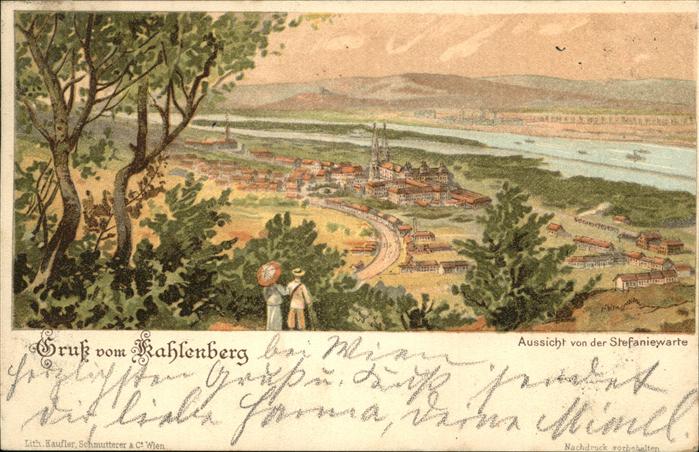 Gruß vom Kahlenberg bei Wien
Aussicht von der Stefaniewarte
herzlichsten Gruß u. Kuß sendet
dir, liebe Hanna, deine Mimi.
Lith. Kaufler, Schmutterer & Co. Wien.
Nachdruck vorbehalten